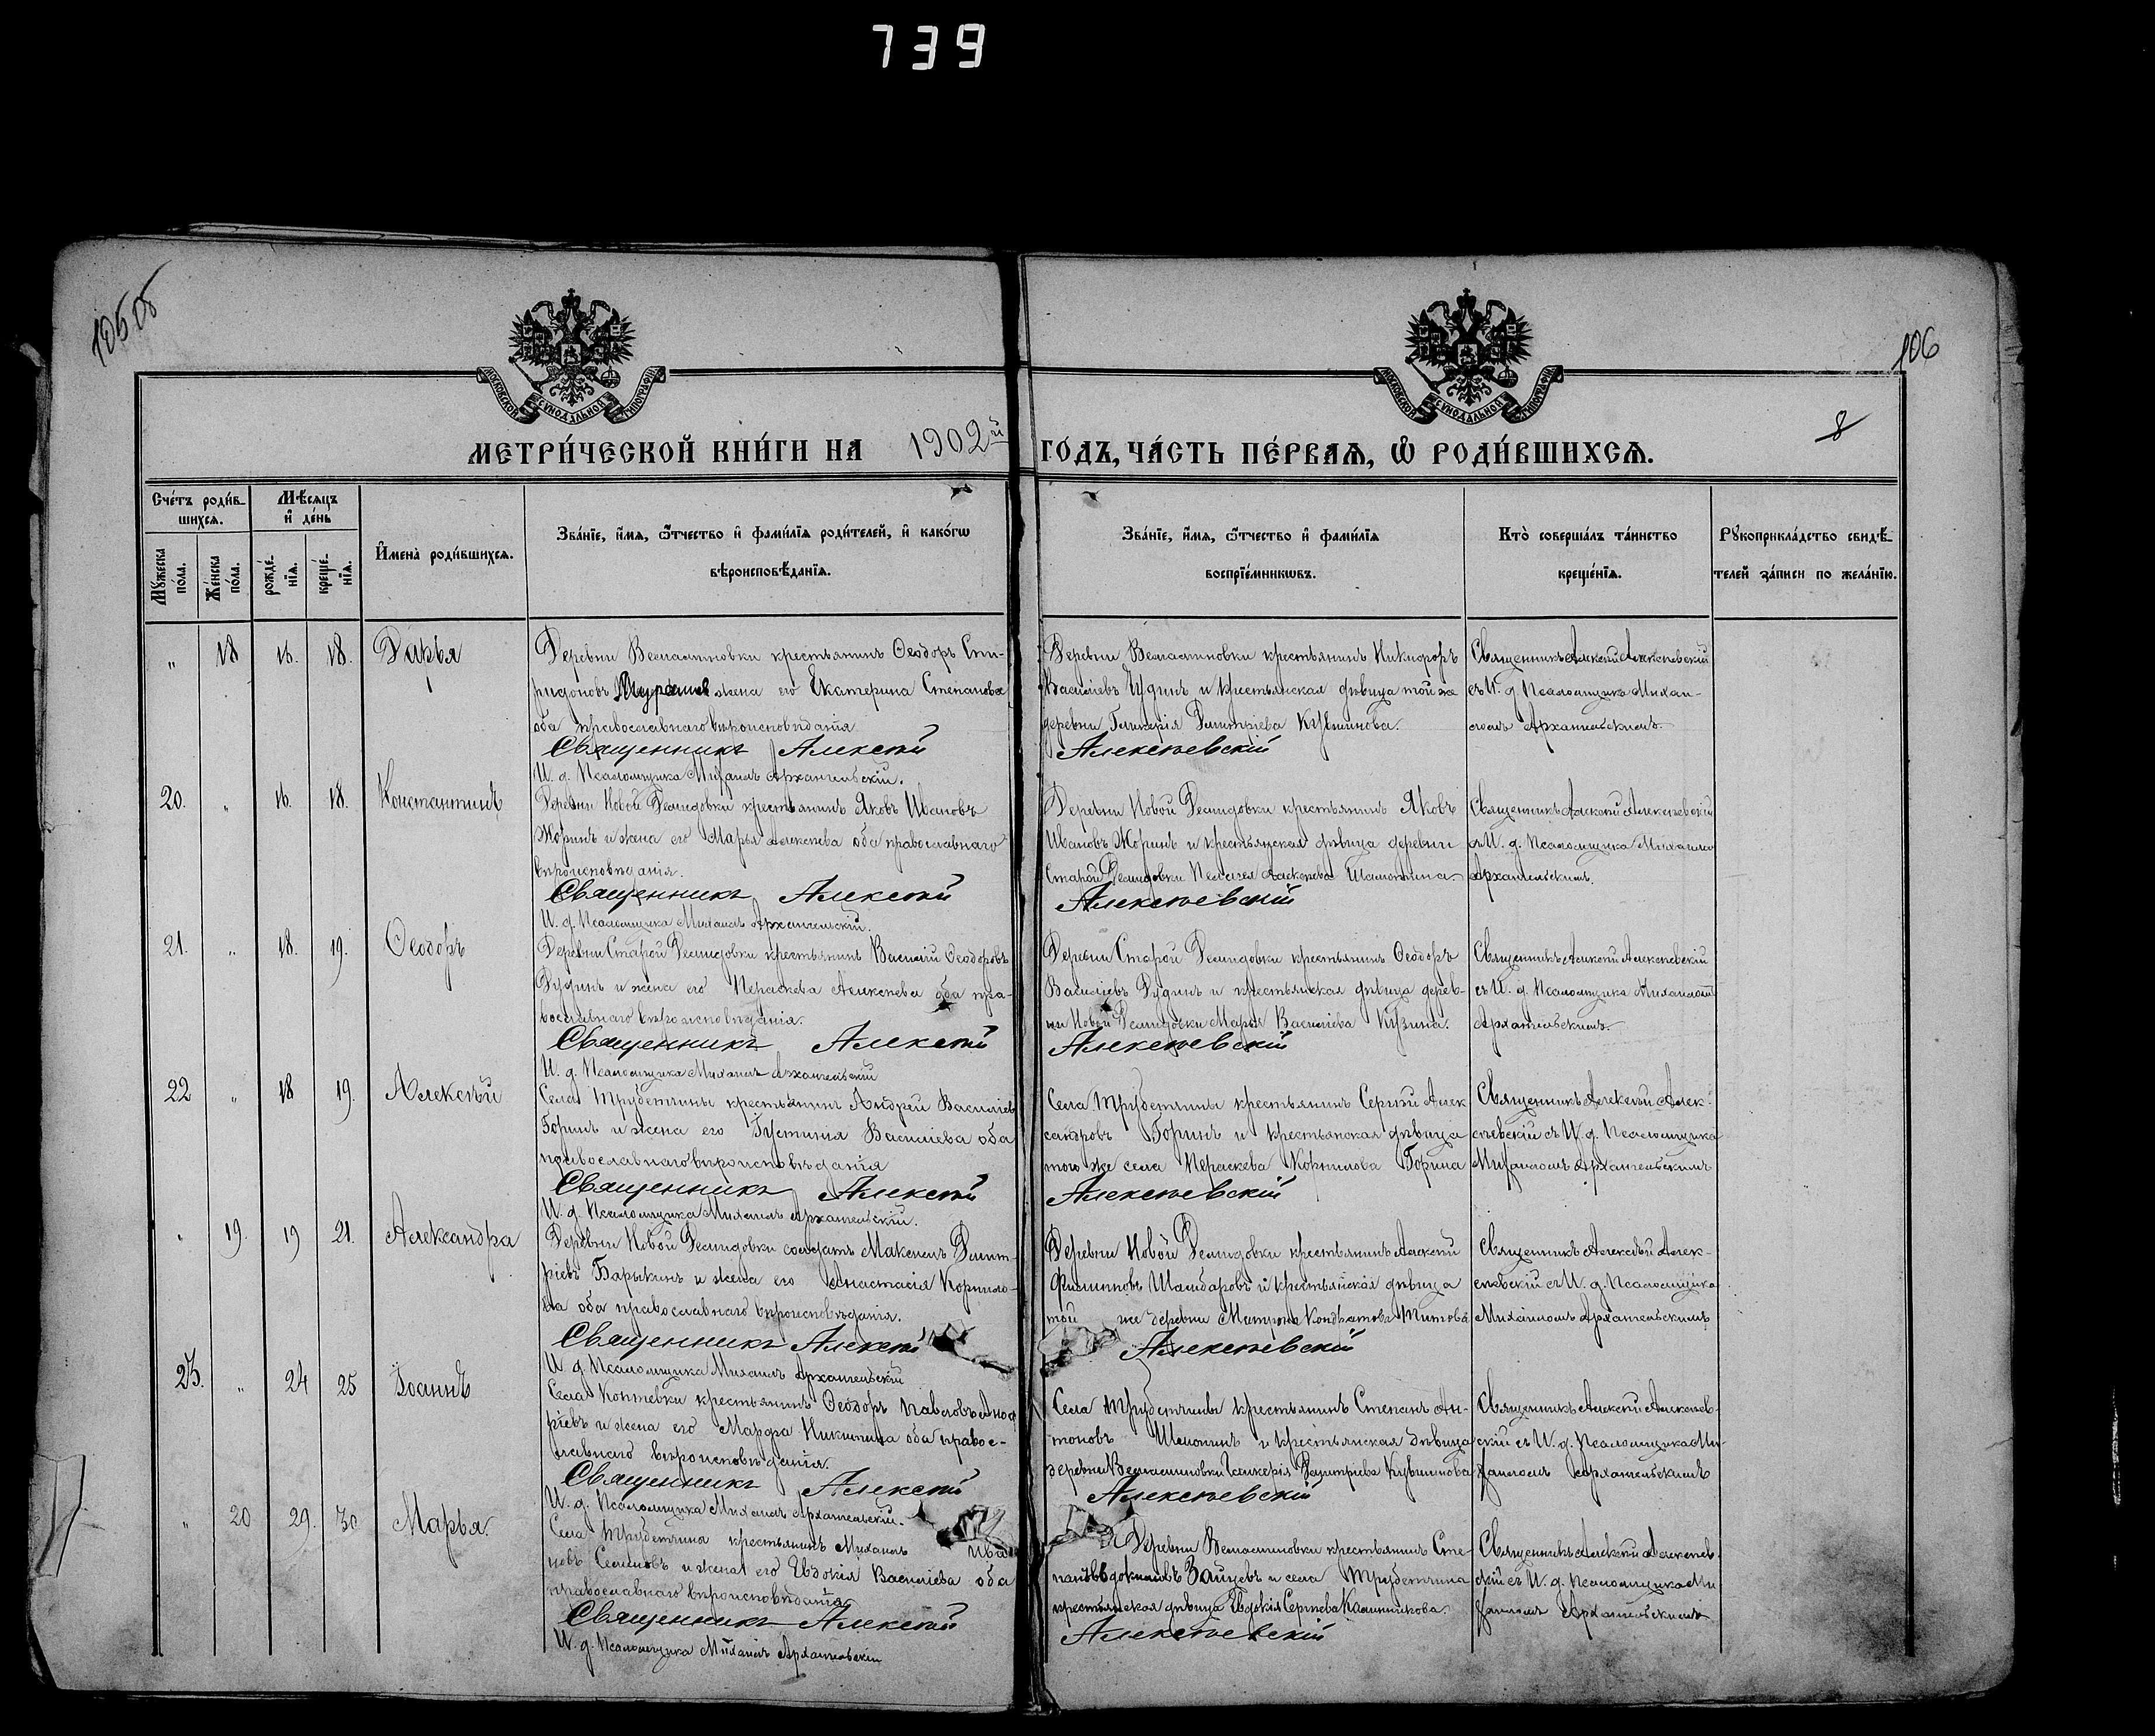 739
106
8
МОСКОВСКОЙ СѴНОДАЛЬНОЙ ТИПОГРАФІИ
МОСКОВСКОЙ СѴНОДАЛЬНОЙ ТИПОГРАФІИ
МЕТРИ́ЧЕСКОЙ КНИ́ГИ НА 1902й ГО́ДЪ, ЧА́СТЬ ПЕ́РВАЯ, Ѡ РОДИ́ВШИХСЯ.
Сче́тъ роди́в-
шихся.
Мѣ́сяцъ
и де́нь
Мꙋ́жеска
по́ла.
Же́нска
по́ла.
рожде́-
нія.
креще́-
нія.
Имена̀ роди́вшихся.
Зва́ніе, и́мя, ѻ́тчество и фами́лія роди́телей, и како́гѡ
вѣроисповѣ́данія.
Зва́ніе, и́мя, ѻ́тчество и фами́лія
воспріе́мникѡвъ.
Кто̀ соверша́лъ та́инство
креще́нія.
Рꙋкоприкла́дство свидѣ́-
телей за́писи по жела́нію.
„ 18 16. 18. Дарья
Деревни крестьянинъ Ѳеодоръ Спи-
ридоновъ жена его Екатерина Степановна
оба православнаго вѣроисповѣданія
Священникъ Алексѣй
И. д. Псаломщика Михаилъ Архангельскій.
Деревни крестьянинъ Никифоръ
Василіевъ Чудинъ и крестьянская дѣвица той же
деревни Гликерія Димитріева Кувшинова.
Алексѣевскій
Священникъ Алексѣй Алексѣевскій
съ И. д. Псаломщика Михаи-
ломъ Архангельскимъ
20. „ 16. 18. Константинъ
Деревни Новой Демидовки крестьянинъ Яковъ Ивановъ
Жоринъ и жена его Марья Алексѣева оба православнаго
вѣроисповѣданія.
Священникъ Алексѣй
И. д. Псаломщика Михаилъ Архангельскій.
Деревни Новой Демидовки крестьянинъ Яковъ
Ивановъ Жоринъ и крестьянская дѣвица деревни
Старой Демидовки Пелагея Алексѣева
Алексѣевскій
Священникъ Алексѣй Алексѣевскій
съ И. д. Псаломщика Михаиломъ
Архангельскимъ.
21. „ 18. 19. Ѳеодоръ
Деревни Старой Демидовки крестьянинъ Василій Ѳеодоровъ
Дудинъ и жена его Параскева Алексѣева оба пра-
вославнаго вѣроисповѣданія.
Священникъ Алексѣй
И. д. Псаломщика Михаилъ Архангельскій
Деревни Старой Демидовки крестьянинъ Ѳеодоръ
Василіевъ Дудинъ и крестьянская дѣвица дерев-
ни Новой Демидовки Марья Василіева Кузина.
Алексѣевскій
Священникъ Алексѣй Алексѣевскій
съ И. д. Псаломщика Михаиломъ
Архангельскимъ.
22 „ 18 19. Алексѣй
Села Трубетчины крестьянинъ Андрей Василіевъ
Горинъ и жена его Іустинія Василіева оба
православнаго вѣроисповѣданія
Священникъ Алексѣй
И. д. Псаломщика Михаилъ Архангельскій.
Села Трубетчины крестьянинъ Сергѣй Алек
сандровъ Горинъ и крестьянская дѣвица
того же села Параскева Корнилова Горина
Алексѣевскій
Священникъ Алексѣй Алек-
сѣевскій съ И. д. Псаломщика
Михаиломъ Архангельскимъ
„ 19. 19 21. Александра
Деревни Новой Демидовки солдатъ Максимъ Димит-
ріевъ Барыкинъ и жена его Анастасія Корнило-
ва оба православнаго вѣроисповѣданія.
Священникъ Алексѣй
И. д. Псаломщика Михаилъ Архангельскій
Деревни Новой Демидовки крестьянинъ Алексѣй
Филипповъ и крестьянская дѣвица
той же деревни Матрона Кондратова Титова
Алексѣевскій
Священникъ Алексѣй Алек-
сѣевскій съ И. д. Псаломщика
Михаиломъ Архангельскимъ
23. „ 24 25 Іоаннъ
Села Коптевки крестьянинъ Ѳеодоръ Павловъ
ріевъ и жена его Марфа Никитина оба правос-
лавнаго вѣроисповѣданія.
Священникъ Алексѣй
И. д. Псаломщика Михаилъ Архангельскій.
Села Трубетчины крестьянинъ Степанъ Ан-
тоновъ и крестьянская дѣвица
деревни Гликерія Димитріева Кувшинова
Алексѣевскій
Священникъ Алексѣй Алексѣев-
скій съ И. д. Псаломщика Ми-
хаиломъ Архангельскимъ
„ 20 29. 30 Марья.
Села Трубетчина крестьянинъ Михаилъ Ива
новъ Семеновъ и жена его Евдокія Василіева оба
православнаго вѣроисповѣданія
Священникъ Алексѣй
И. д. Псаломщика Михаилъ Архангельскій
Деревни крестьянинъ Сте-
панъ Зайцевъ и села Трубетчина
крестьянская дѣвица Евдокія Сергѣева Калинникова.
Алексѣевскій
Священникъ Алексѣй Алексѣев-
скій съ И. д. Псаломщика Ми
хаиломъ Архангельскимъ